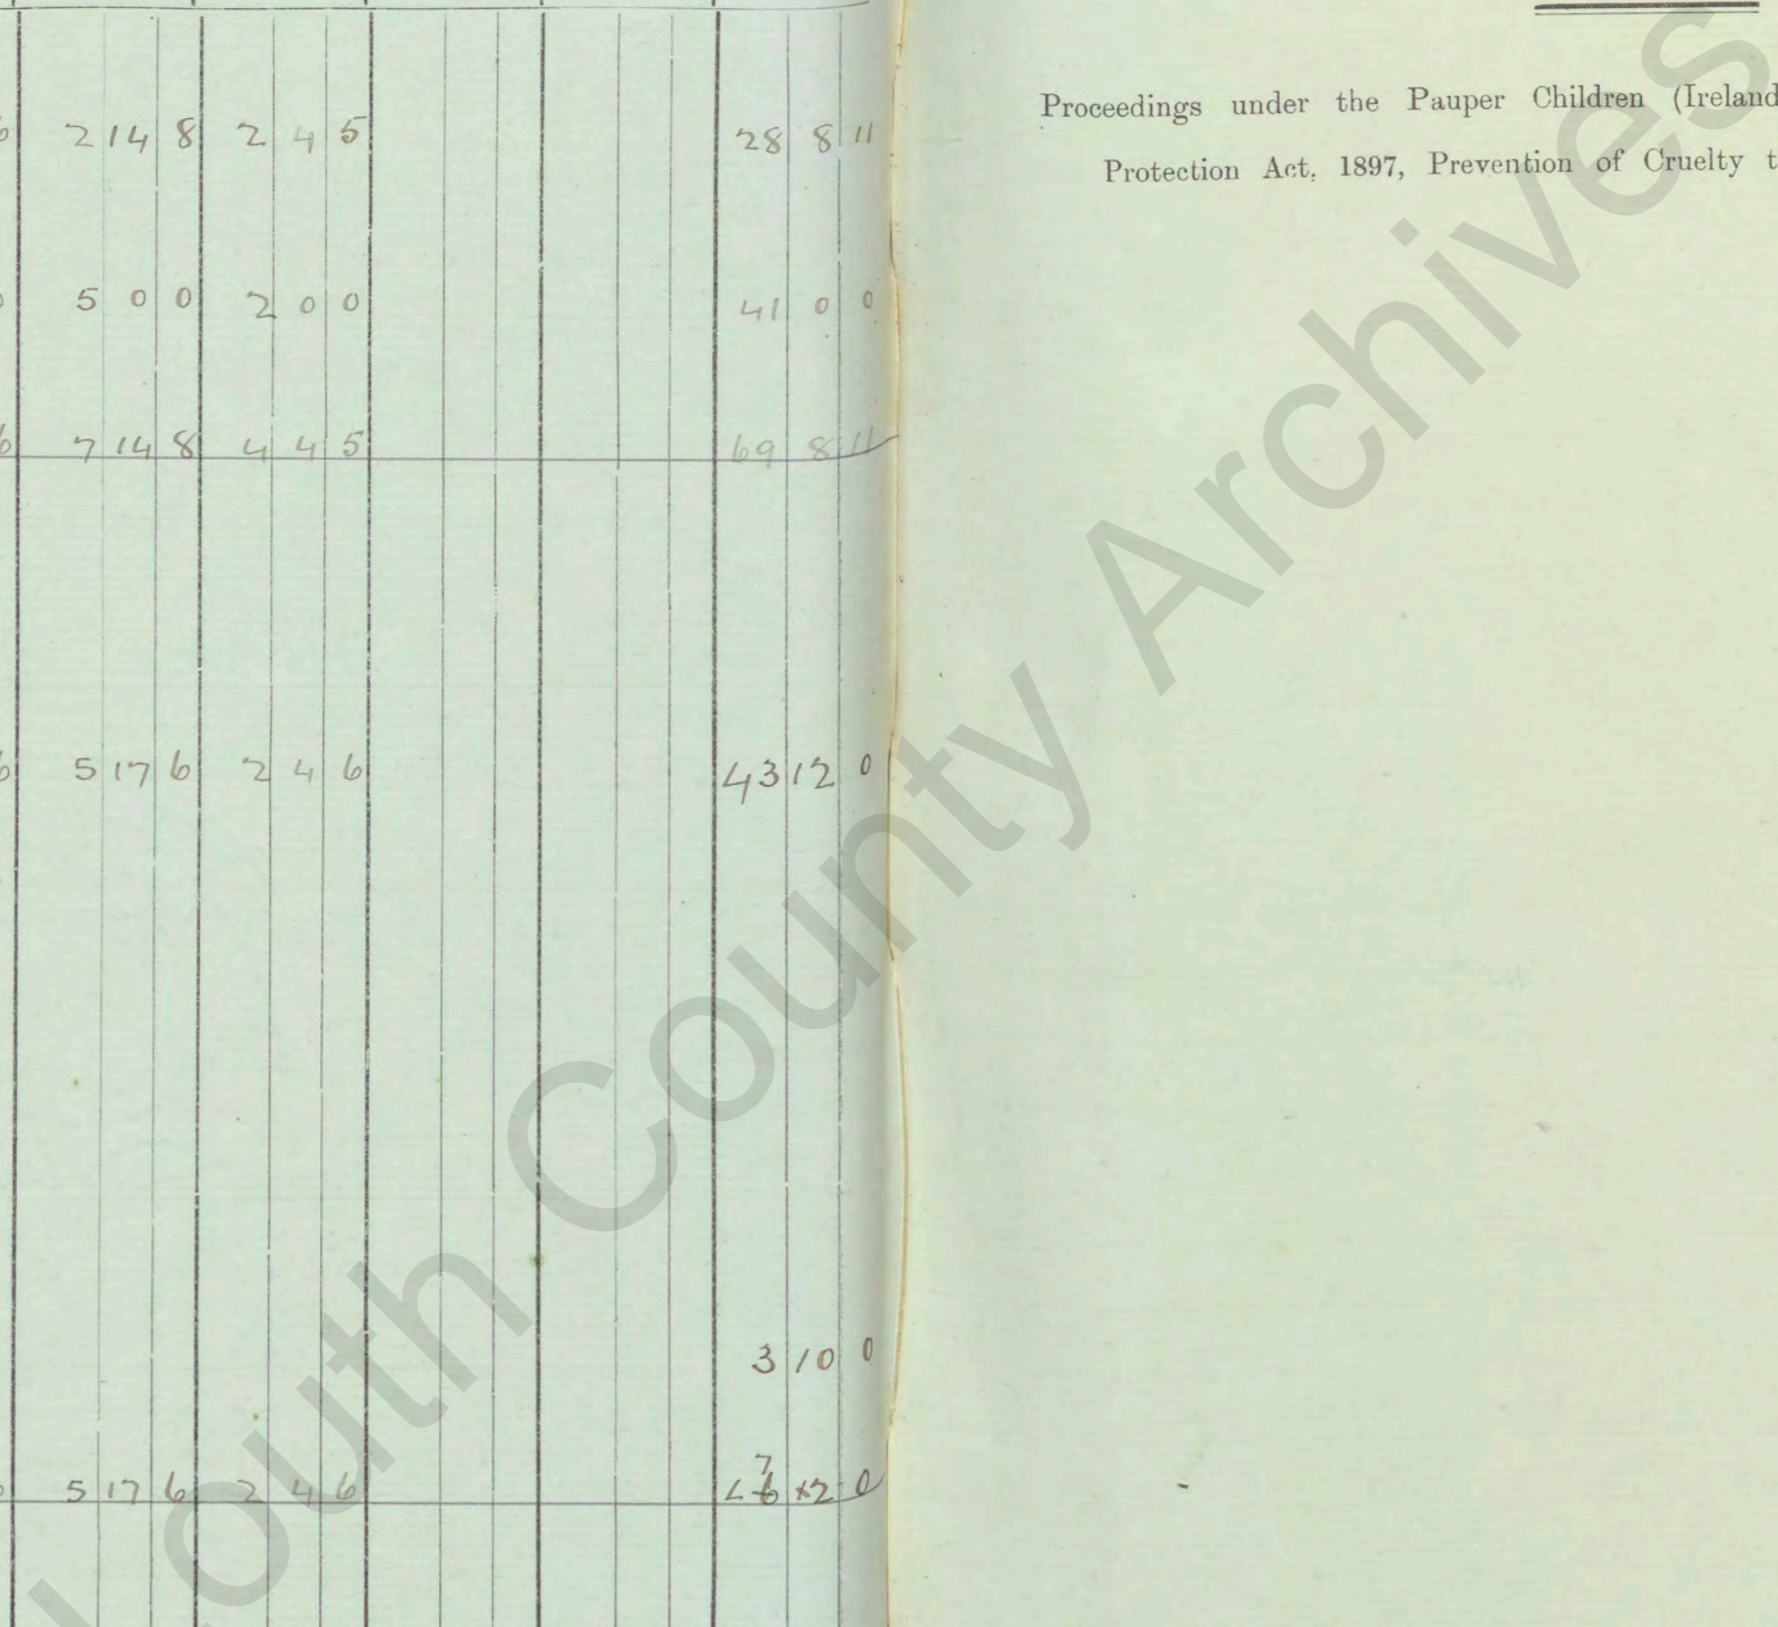 6 2 14 8 2 4 5 28 8 11
5 0 0 2 0 0 41 0 0
6 7 14 8 4 4 5 69 8 11
6 5 17 6 2 4 6 43 12 0
3 10 0
7
5 17 6 2 4 6 46 12 0
Proceedings under the Pauper Children (Ireland
Protection Act, 1897, Prevention of Cruelty t
Louth County Archives